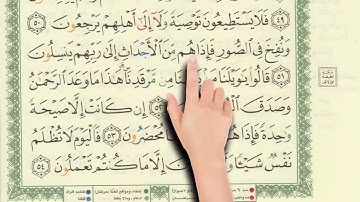 ٤٩ فَلَا يَسْتَطِيعُونَ تَوْصِيَةً وَلَآ إِلَىٰٓ أَهْلِهِمْ يَرْجِعُونَ ٥٠
وَنُفِخَ فِي ٱلصُّورِ فَإِذَا هُم مِّنَ ٱلْأَجْدَاثِ إِلَىٰ رَبِّهِمْ يَنسِلُونَ
٥١ قَالُوا۟ يَٰوَيْلَنَا مَنۢ مِن مَّرْقَدِنَا هَٰذَا مَا وَعَدَ ٱلرَّحْمَٰنُ
وَصَدَقَ إِن كَانَتْ إِلَّا صَيْحَةً
وَٰحِدَةً فَإِذَا هُمْ مُحْضَرُونَ ٥٣ فَٱلْيَوْمَ لَا تُظْلَمُ
نَفْسٌ شَيْـًٔا وَلَا إِلَّا مَا كُنتُمْ تَعْمَلُونَ ٥٤